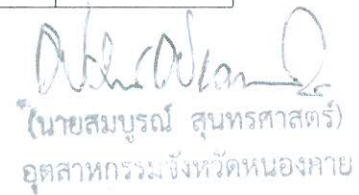 (นายสมบูรณ์ สุนทรศาสตร์)
อุตสาหกรรมจังหวัดหนองคาย